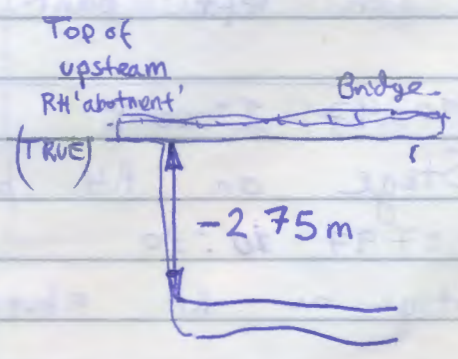 Top of
upstream
RH 'abotment'
(TRUE)
Bridge
-2.75m